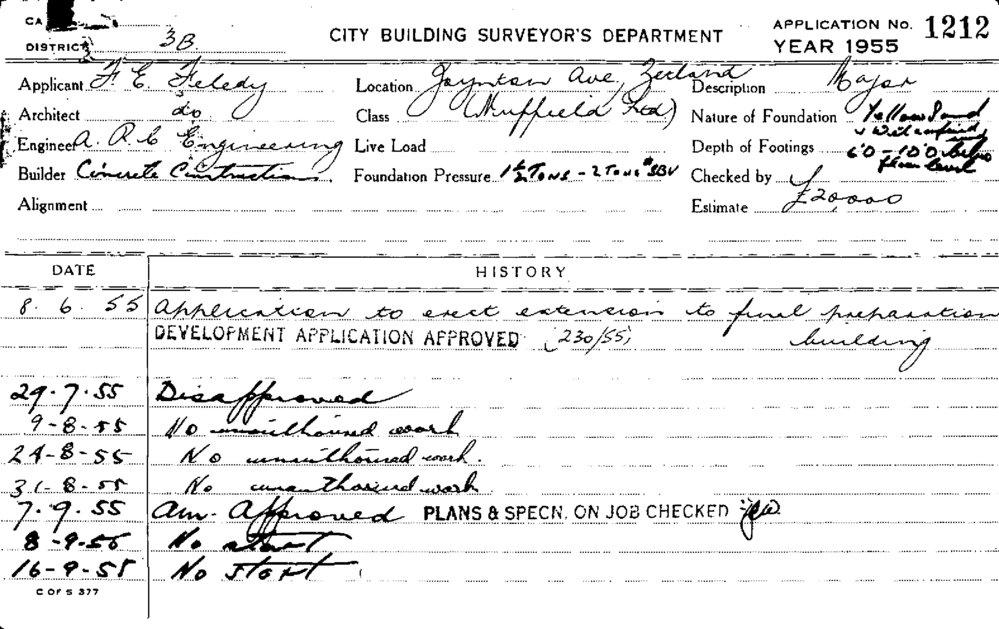 CA
DISTRICT 3B
CITY BUILDING SURVEYOR'S DEPARTMENT
APPLICATION No. 1212
YEAR 1955
Applicant F. E. Feledy
Location Joynton Ave, Zetland
Description Major
Architect do
Class (Nuffield Ltd)
Nature of Foundation Yellow Sand
Engineer A. R. C Engineering
Live Load
Depth of Footings 6'0 - 10'0 below
floor level
Builder Concrete Constructions
Foundation Pressure 1½ Tons - 2 Tons
Checked by
Alignment
Estimate £20,000
DATE
HISTORY
8. 6. 55 Application to erect extension to final preparation
building
DEVELOPMENT APPLICATION APPROVED (230/55)
29.7.55 Disapproved
9-8-55 No unauthorised work
24-8-55 No unauthorised work.
31-8-55 No unauthorised work
7.9.55 Am. Approved PLANS & SPECN. ON JOB CHECKED
8-9-55 No start
16-9-55 No start.
C OF S 377